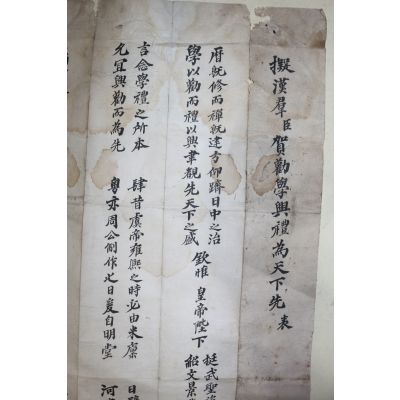 擬漢羣臣賀勸學興禮為天下先表
曆旣修而禪旣建方仰躋日中之治
學以勸而禮以興聿覩先天下之盛
欽惟 皇帝陛下
挺武聖
紹文景
言念學禮之所本
允宜興勸而為先
肆昔虞帝雍熙之時必由米廩
粤亦周公制作之日爰自明堂
日
河